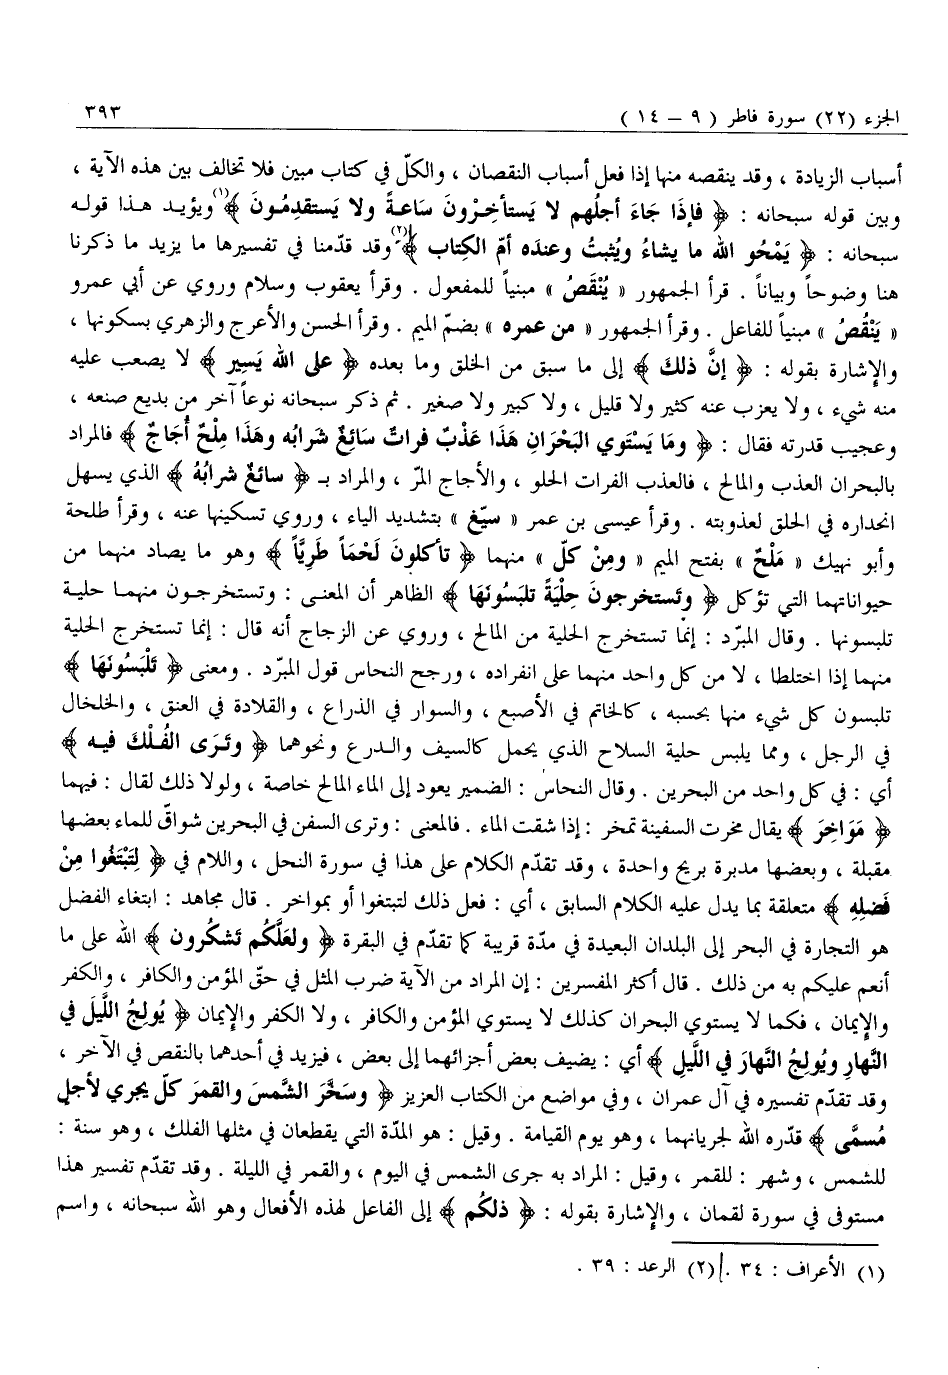 الجزء (٢٢) سورة فاطر ( ٩ - ١٤ ) ٣٩٣
أسباب الزيادة ، وقد ينقصه منها إذا فعل أسباب النقصان ، والكلّ في كتاب مبين فلا تخالف بين هذه الآية ،
وبين قوله سبحانه : ﴿ فإذَا جَاءَ أجلُهم لا يَستأخِرُونَ سَاعةً ولا يَستقدِمُونَ ﴾(١) ويؤيد هذا قوله
سبحانه : ﴿ يَمْحُو الله ما يشاءُ ويُثبتُ وعندَه أمّ الكِتاب ﴾(٢) وقد قدّمنا في تفسيرها ما يزيد ما ذكرنا
هنا وضوحاً وبياناً . قرأ الجمهور « يُنْقَصُ » مبنياً للمفعول . وقرأ يعقوب وسلام وروي عن أبي عمرو
« يَنْقُصُ » مبنياً للفاعل . وقرأ الجمهور « من عمره » بضمّ الميم . وقرأ الحسن والأعرج والزهري بسكونها ،
والإشارة بقوله : ﴿ إنَّ ذلكَ ﴾ إلى ما سبق من الخلق وما بعده ﴿ على الله يَسِير ﴾ لا يصعب عليه
منه شيء ، ولا يعزب عنه كثير ولا قليل ، ولا كبير ولا صغير . ثم ذكر سبحانه نوعاً آخر من بديع صنعه ،
وعجيب قدرته فقال : ﴿ ومَا يَسْتوي البَحْرَانِ هَذَا عَذْبٌ فراتٌ سَائِغٌ شَرابُه وهَذَا مِلْحٌ أُجَاجٌ ﴾ فالمراد
بالبحران العذب والمالح ، فالعذب الفرات الحلو ، والأجاج المرّ ، والمراد بـ ﴿ سائغٌ شرابُهُ ﴾ الذي يسهل
انحداره في الحلق لعذوبته . وقرأ عيسى بن عمر « سيّغ » بتشديد الياء ، وروي تسكينها عنه ، وقرأ طلحة
وأبو نهيك « مَلْحٌ » بفتح الميم « ومِنْ كلّ » منهما ﴿ تأكلونَ لَحْمَاً طَرِيَّاً ﴾ وهو ما يصاد منهما من
حيواناتهما التي تؤكل ﴿ وتَستخرجونَ حِلْيَةً تلبَسُونَهَا ﴾ الظاهر أن المعنى : وتستخرجون منهما حلية
تلبسونها . وقال المبرّد : إنّما تستخرج الحلية من المالح ، وروي عن الزجاج أنه قال : إنما تستخرج الحلية
منهما إذا اختلطا ، لا من كل واحد منهما على انفراده ، ورجح النحاس قول المبرّد . ومعنى ﴿ تَلْبَسُونَهَا ﴾
تلبسون كل شيء منها بحسبه ، كالخاتم في الأصبع ، والسوار في الذراع ، والقلادة في العنق ، والخلخال
في الرجل ، ومما يلبس حلية السلاح الذي يحمل كالسيف والدرع ونحوهما ﴿ وتَرَى الفُلْكَ فيه ﴾
أي : في كل واحد من البحرين . وقال النحاس : الضمير يعود إلى الماء المالح خاصة ، ولولا ذلك لقال : فيهما
﴿ مَوَاخِرَ ﴾ يقال مخرت السفينة تمخر : إذا شقت الماء . فالمعنى : وترى السفن في البحرين شواقّ للماء بعضها
مقبلة ، وبعضها مدبرة بريح واحدة ، وقد تقدّم الكلام على هذا في سورة النحل ، واللام في ﴿ لِتَبْتَغُوا مِنْ
فَضلِهِ ﴾ متعلقة بما يدل عليه الكلام السابق ، أي : فعل ذلك لتبتغوا أو بمواخر . قال مجاهد : ابتغاء الفضل
هو التجارة في البحر إلى البلدان البعيدة في مدّة قريبة كما تقدّم في البقرة ﴿ ولعَلَّكُم تَشكُرون ﴾ الله على ما
أنعم عليكم به من ذلك . قال أكثر المفسرين : إن المراد من الآية ضرب المثل في حقّ المؤمن والكافر ، والكفر
والإيمان ، فكما لا يستوي البحران كذلك لا يستوي المؤمن والكافر ، ولا الكفر والإيمان ﴿ يُولِجُ اللَّيلَ في
النَّهارِ ويُولِجُ النَّهارَ في اللَّيلِ ﴾ أي : يضيف بعض أجزائهما إلى بعض ، فيزيد في أحدهما بالنقص في الآخر ،
وقد تقدّم تفسيره في آل عمران ، وفي مواضع من الكتاب العزيز ﴿ وسَخَّرَ الشَّمسَ والقمرَ كلّ يجري لأجلٍ
مُسمًّى ﴾ قدّره الله لجريانهما ، وهو يوم القيامة . وقيل : هو المدّة التي يقطعان في مثلها الفلك ، وهو سنة :
للشمس ، وشهر : للقمر ، وقيل : المراد به جرى الشمس في اليوم ، والقمر في الليلة . وقد تقدّم تفسير هذا
مستوفى في سورة لقمان ، والإشارة بقوله : ﴿ ذلكُم ﴾ إلى الفاعل لهذه الأفعال وهو الله سبحانه ، واسم
(١) الأعراف : ٣٤ . (٢) الرعد : ٣٩ .